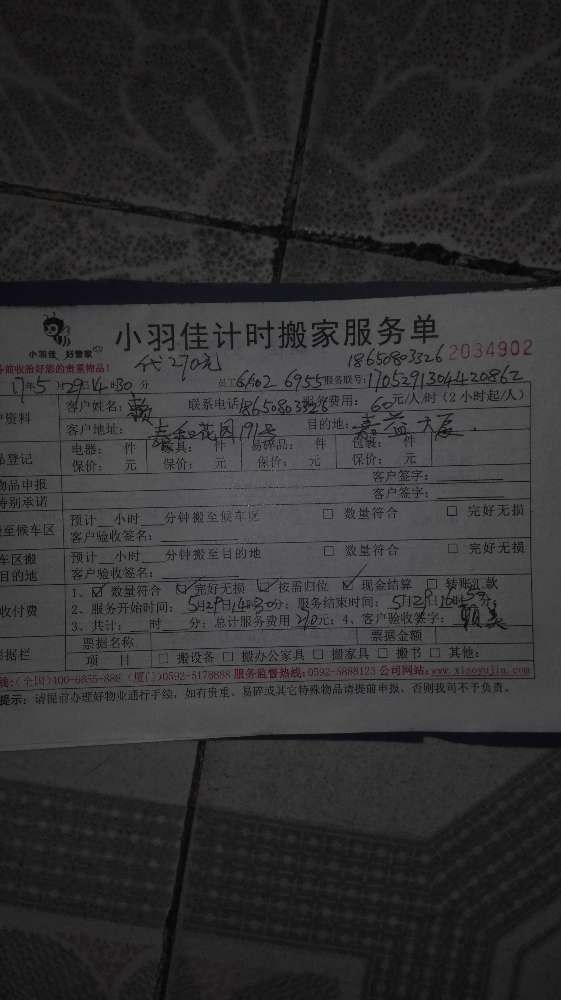 小羽佳 好管家
小羽佳计时搬家服务单
前收拾好您的贵重物品!
代270元
18650803326 2034902
17年5月29日14时30分 员工6602 6955 服务联号:1705291304420862
户资料 客户姓名:赖 联系电话18650803326 服务费用:60元/人/时(2小时起/人)
客户地址:花园191号 目的地:嘉益大厦
品登记 电器: 件 家具: 件 易碎品: 件 件
保价: 元 保价: 元 保价: 元 保价: 元
物品申报 客户签字:
特别承诺 客户签字:
至候车区 预计 小时 分钟搬至候车区 □ 数量符合 □ 完好无损
客户验收签名:
车区搬 预计 小时 分钟搬至目的地 □ 数量符合 □ 完好无损
目的地 客户验收签名:
1、☑ 数量符合 ☑ 完好无损 ☑ 按需归位 ☑ 现金结算 □ 转账汇款
收付费 2、服务开始时间:5月29日14时30分;服务结束时间:5月29日16时 分;
3、共计: 时 分;总计服务费用 元;4、客户验收签字:赖
票据名称 票据金额
票据栏 项 目 □ 搬设备 □ 搬办公家具 □ 搬家具 □ 搬书 □ 其他:
线:(全国)400-6655-888 (厦门)0592-5178888 服务监督热线:0592-5888123 公司网站:www.xiaoyujia.com
提示:请提前办理好物业进行手续,如有贵重、易碎或其它特殊物品请提前申报,否则我司不予负责。